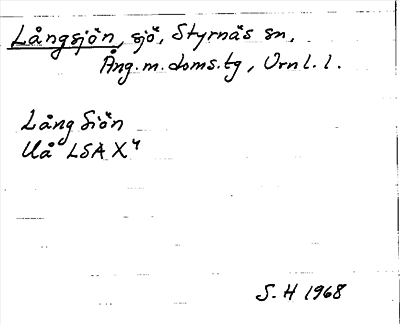 Långsjön, sjö, Styrnäs sn,
Ång. m. doms.tg, Vrnl. l.
Lång Siön
Uå LSA X4
S. H 1968